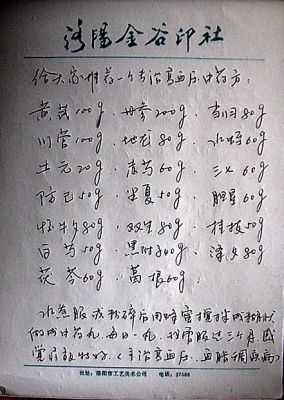 洛阳金谷印社
给大家推荐一个专治高血压中药方：
黄芪100g、丹参200g、当归80g
川芎100g、地龙80g、水蛭60g
土元20g、赤芍60g、三七60g
防己50g、半夏50g、胆星60g
怀牛夕80g、双生80g、桂枝50g
白芍50g、黑附子40g、泽夕80g
茯苓60g、葛根60g.
水煎服或粉碎后用蜂蜜搅拌成糊状
做成中药丸，每日一丸，我常服过三个月，感
觉疗效特好（主治高血压、血脂稠疾病）
社址：洛阳市工艺美术公司 电话：27588